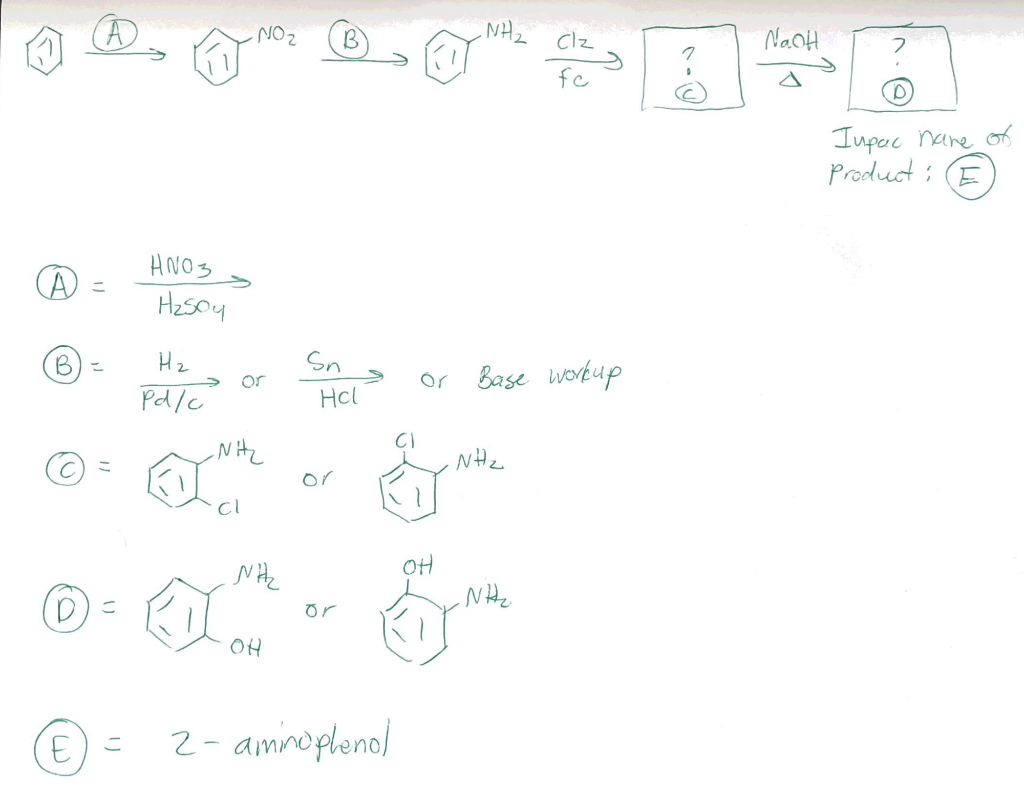 A NO2 B NH2 Cl2 Fc ? C NaOH Δ ? D
Iupac name of
product : E
A = HNO3 H2SO4
B = H2 Pd/c or Sn HCl or Base workup
C = NH2 Cl or Cl NH2
D = NH2 OH or OH NH2
E = 2-aminoplenol